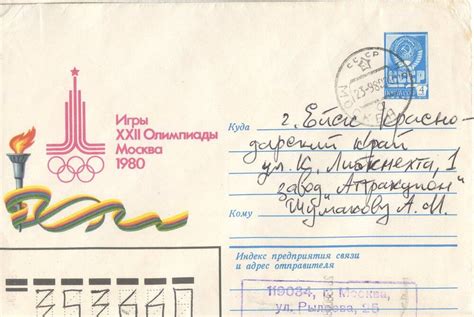 Игры
XXII Олимпиады
Москва
1980
СССР
23-9-80
Куда
г. Ейск Красно-
дарский край
ул. К. Либкнехта, 1
завод "Аттракцион"
Кому
Шумакову А. М.
Индекс предприятия связи
и адрес отправителя
353660
119034, г. Москва,
ул. Рылеева, 25